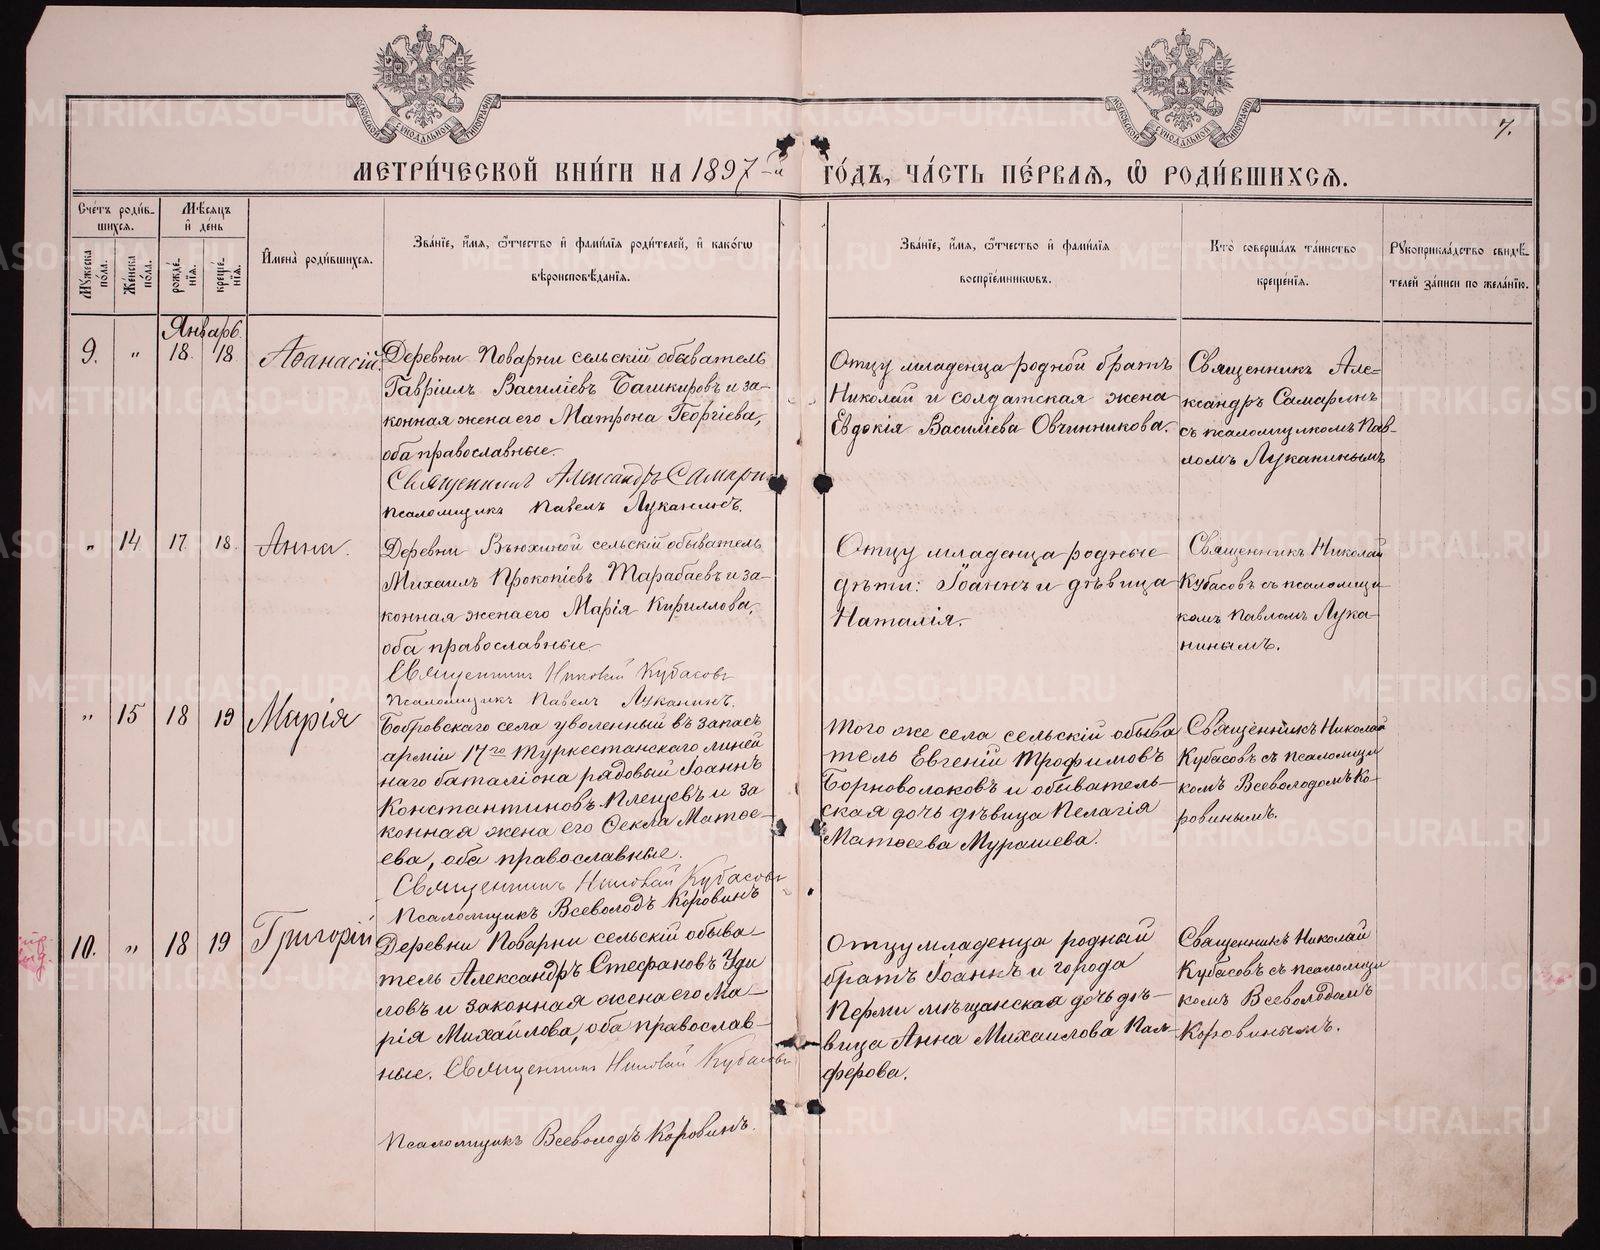 МЕТРИ́ЧЕСКОЙ КНИ́ГИ НА 1897-й ГО́ДЪ, ЧА́СТЬ ПЕ́РВАѦ, Ѽ РОДИ́ВШИХСѦ.
7.
Сче́тъ роди́в-
шихся.
Мѣ́сѧцъ
и҆ де́нь
Мꙋ́жеска пола.
Же́нска пола.
рожде́-
нїѧ.
креще́-
нїѧ.
И҆мена̀ роди́вшихсѧ.
Зва́нїе, и҆́мѧ, ѻ҆́тчество и҆ фами́лїѧ роди́телей, и҆ како́гѡ
вѣроисповѣ́данїѧ.
Зва́нїе, и҆́мѧ, ѻ҆́тчество и҆ фами́лїѧ
воспрїе́мникѡвъ.
Кто̀ соверша́лъ та́инство
креще́нїѧ.
Рꙋкоприкла́дство свидѣ́-
телей за́писи по жела́нїю.
Январь.
9. " 18. 18 Аѳанасій.
Деревни Поварни сельскій обыватель
Гавріилъ Василіевъ Башкировъ и за-
конная жена его Матрона Георгіева,
оба православные.
Священникъ Александръ Самарин
Псаломщикъ Павелъ Луканинъ.
Отцу младенца родной братъ
Николай и солдатская жена
Евдокія Василіева Овчинникова.
Священникъ Але-
ксандръ Самаринъ
съ псаломщикомъ Пав-
ломъ Луканинымъ
" 14 17. 18. Анна.
Деревни Вьюхиной сельскій обыватель
Михаилъ Прокопіевъ Тарабаевъ и за-
конная жена его Марія Кириллова,
оба православные.
Священникъ Николай Кубасовъ
Псаломщикъ Павелъ Луканинъ.
Отцу младенца родные
дѣти: Іоаннъ и дѣвица
Наталія.
Священникъ Николай
Кубасовъ съ псаломщи
комъ Павломъ Лука
нинымъ.
" 15 18 19 Марія
Бобровскаго села уволенный въ запасъ
арміи 17го Туркестанскаго линей
наго баталіона рядовый Іоаннъ
Константиновъ Плещевъ и за
конная жена его Ѳекла Матѳе-
ева, оба православные.
Священникъ Николай Кубасовъ
Псаломщикъ Всеволодъ Коровинъ
Того же села сельскій обыва
тель Евгеній Трофимовъ
Борноволоковъ и обыватель-
ская дочь дѣвица Пелагія
Матѳеева Мурашева.
Священникъ Николай
Кубасовъ съ псаломщи
комъ Всеволодомъ Ко-
ровинымъ.
10. " 18 19 Григорій
Деревни Поварни сельскій обыва-
тель Александръ Стефановъ Уди
ловъ и законная жена его Ма-
рія Михайлова, оба православ-
ные. Священникъ Николай Кубасовъ
Псаломщикъ Всеволодъ Коровинъ.
Отцу младенца родный
братъ Іоаннъ и города
Перми мѣщанская дочь дѣ-
вица Анна Михаилова Пал-
ферова.
Священникъ Николай
Кубасовъ съ псаломщи
комъ Всеволодомъ
Коровинымъ.
METRIKI.GASO-URAL.RU